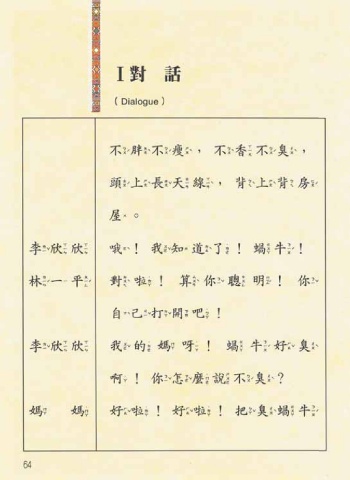 I 對 話
( Dialogue )
不胖不瘦，不香不臭，
頭上長天線，背上背房
屋。
李欣欣 哦！我知道了！蝸牛！
林一平 對啦！算你聰明！你
自己打開吧！
李欣欣 我的媽呀！蝸牛好臭
啊！你怎麼說不臭？
媽 媽 好啦！好啦！把臭蝸牛
64